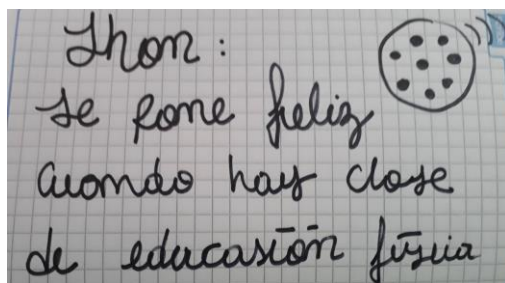 Jhon:
se pone feliz
cuando hay clase
de educasión físuia